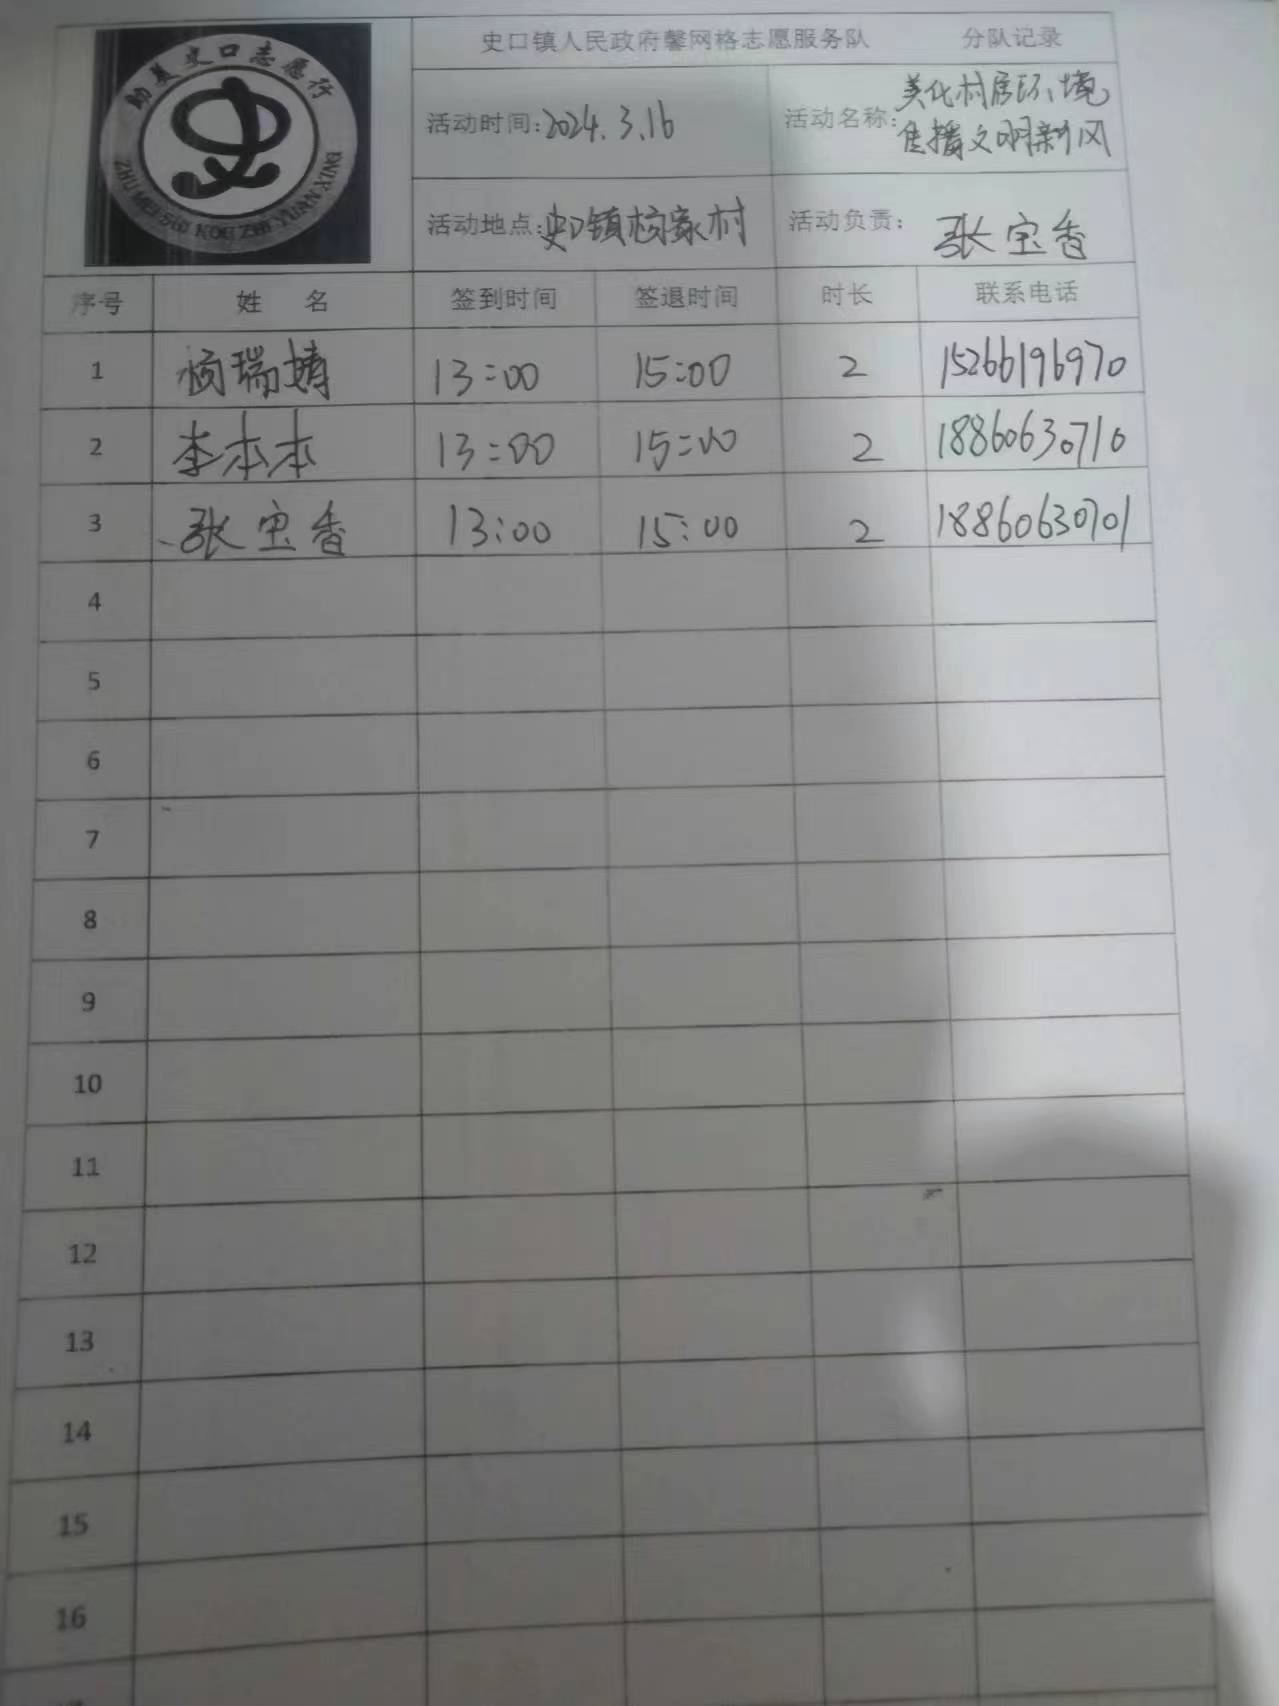 助美史口志愿行
ZHU MEI SHI KOU ZHI YUAN XING
史口镇人民政府馨网格志愿服务队 分队记录
活动时间:2024.3.16
活动名称:美化村居环境
传播文明新风
活动地点:史口镇杨家村
活动负责:张宝香
序号 姓 名 签到时间 签退时间 时长 联系电话
1 杨瑞婧 13:00 15:00 2 15266196970
2 李本本 13:00 15:00 2 18860630710
3 张宝香 13:00 15:00 2 18860630701
4
5
6
7
8
9
10
11
12
13
14
15
16